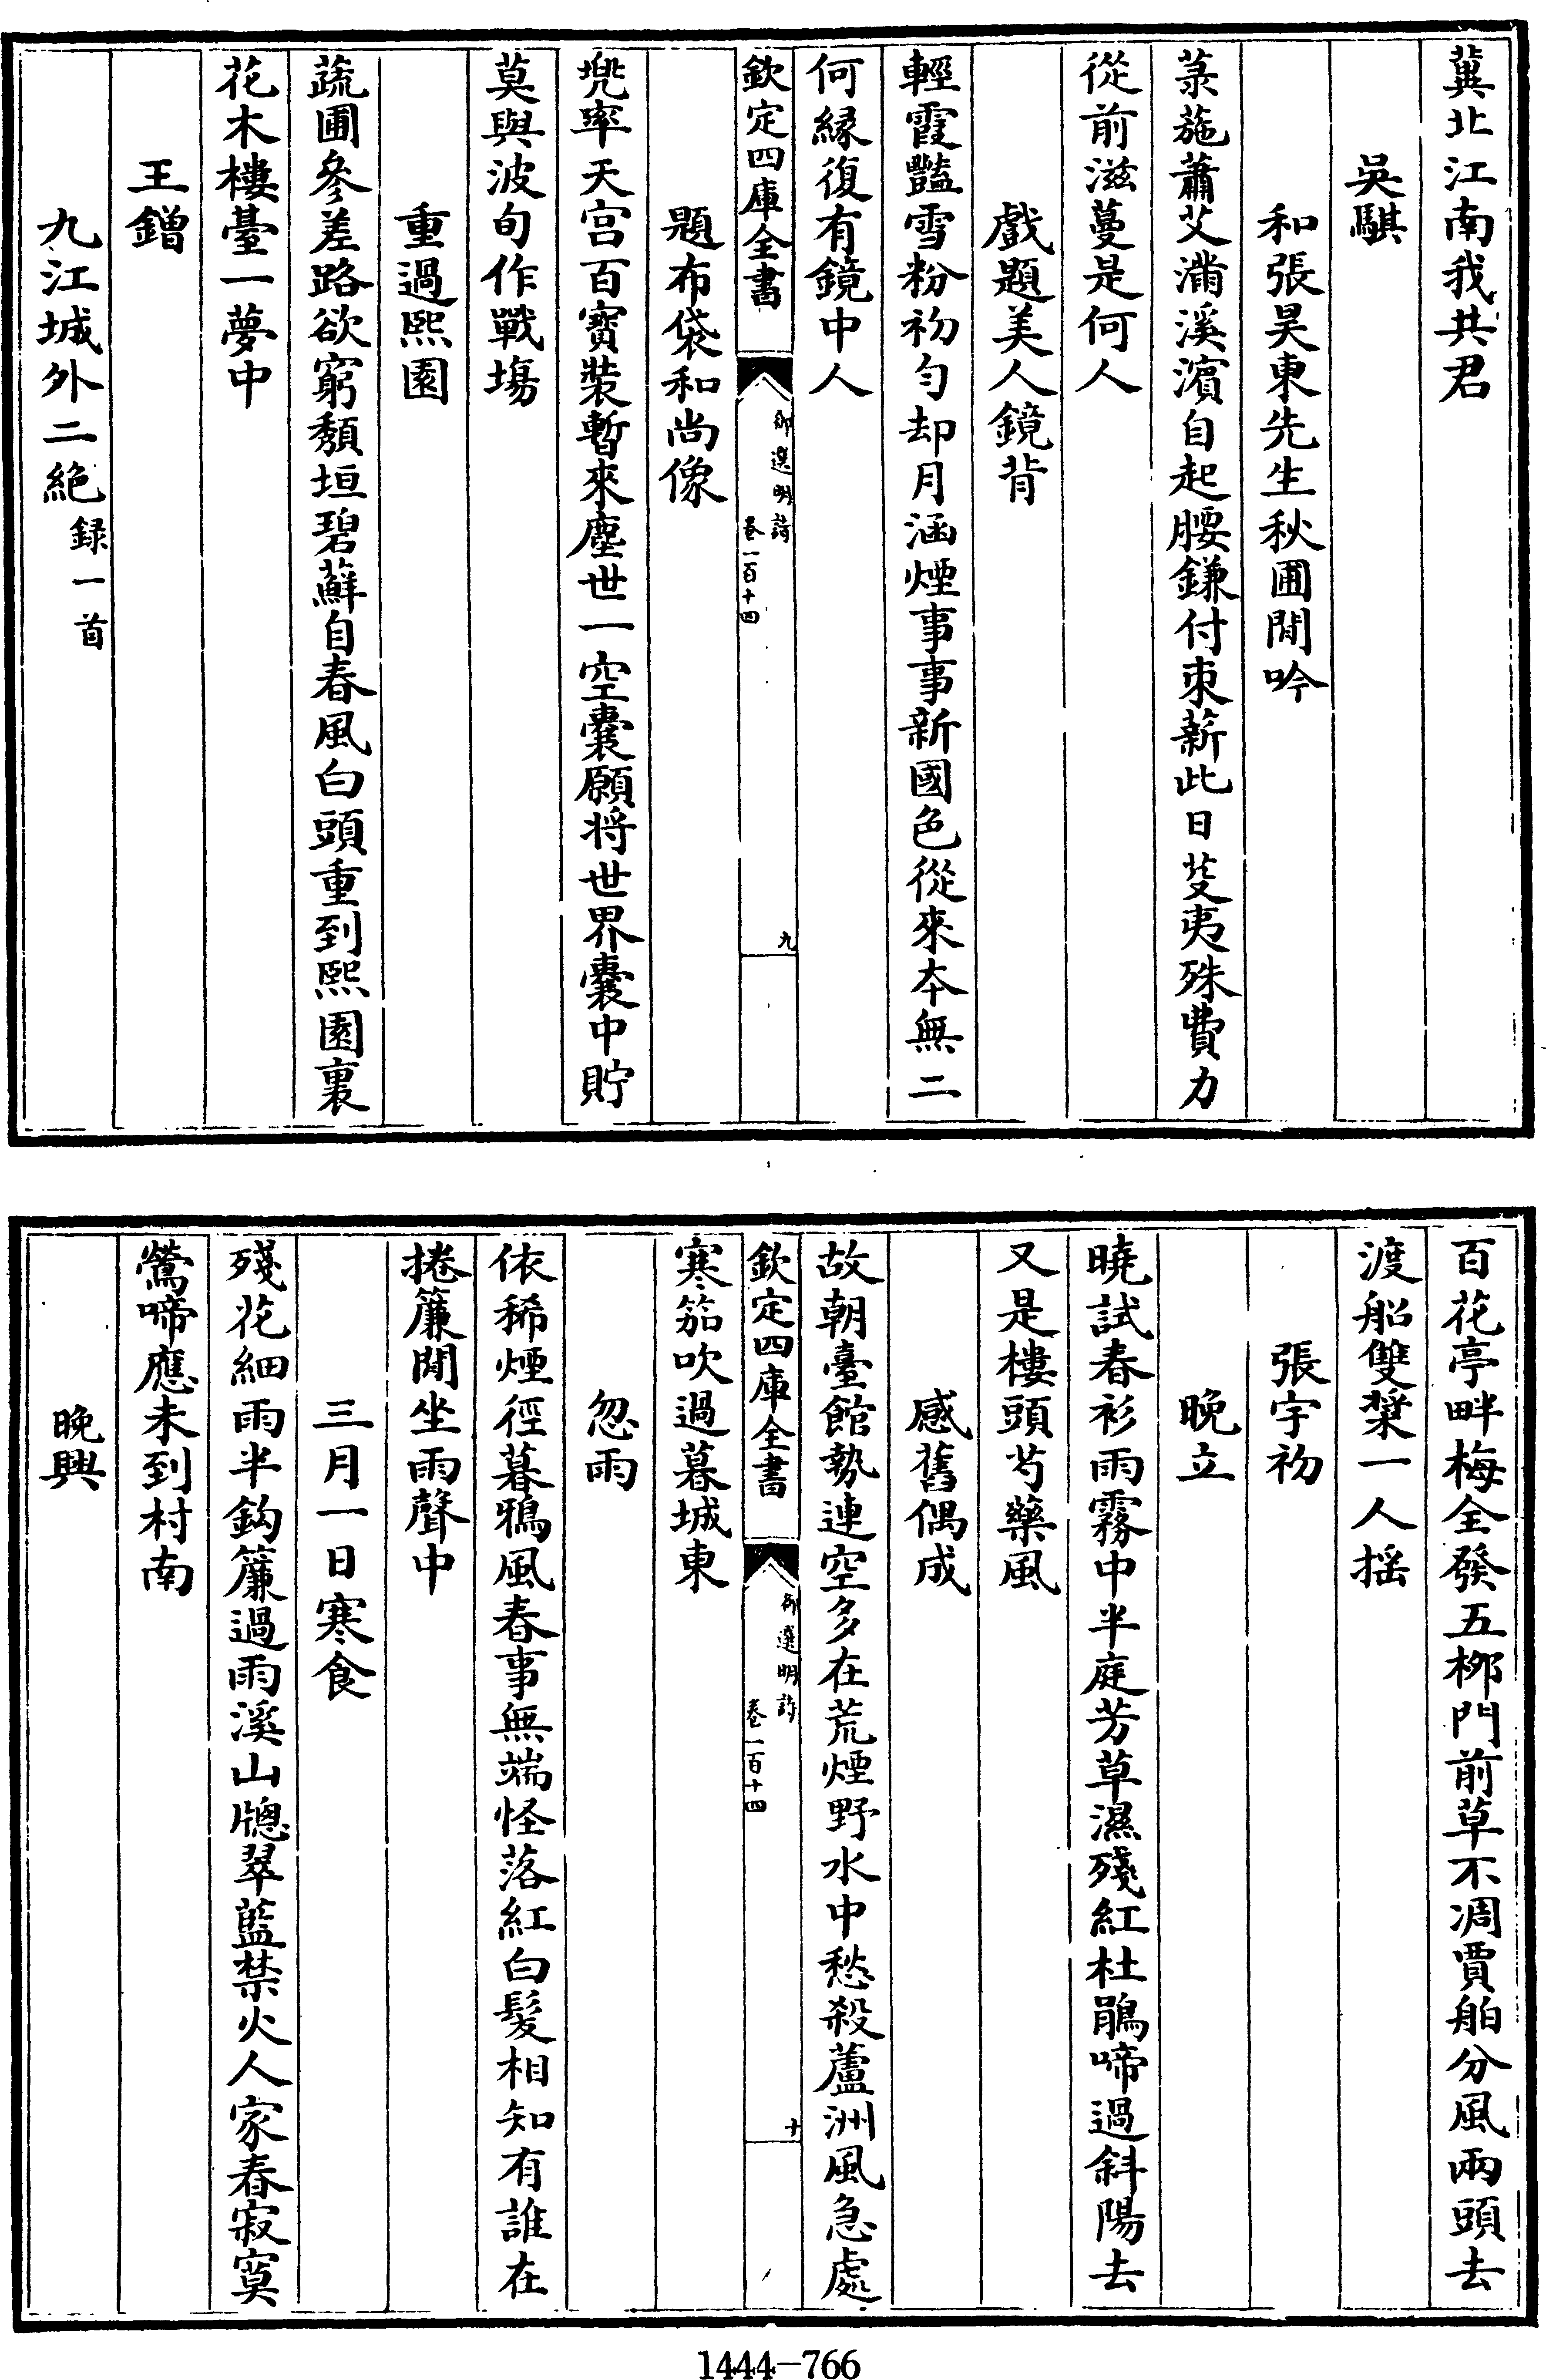 冀北江南我共君
吳騏
和張昊東先生秋圃閒吟
菉葹蕭艾滿溪濵自起腰鎌付束薪此日芟夷殊費力
從前滋蔓是何人
戲題美人鏡背
輕霞豔雪粉初勻却月涵煙事事新國色從來本無二
何縁復有鏡中人
欽定四庫全書
御選明詩
卷一百十四
九
題布袋和尚像
兠率天宫百寳裝暫來塵世一空囊願将世界囊中貯
莫與波旬作戰塲
重過熙園
蔬圃參差路欲窮頽垣碧蘚自春風白頭重到熙園裏
花木樓臺一夢中
王鏳
九江城外二絶録一首
百花亭畔梅全發五栁門前草不凋賈舶分風兩頭去
渡船雙槳一人揺
張宇初
晚立
曉試春衫雨霧中半庭芳草濕殘紅杜鵑啼過斜陽去
又是樓頭芍藥風
感舊偶成
故朝臺館勢連空多在荒煙野水中愁殺蘆洲風急處
欽定四庫全書
御選明詩
卷一百十四
十
寒笳吹過暮城東
忽雨
依稀煙徑暮鴉風春事無端怪落紅白髪相知有誰在
捲簾閒坐雨聲中
三月一日寒食
殘花細雨半鈎簾過雨溪山牎翠藍禁火人家春寂寞
鶯啼應未到村南
晚興
1444-766